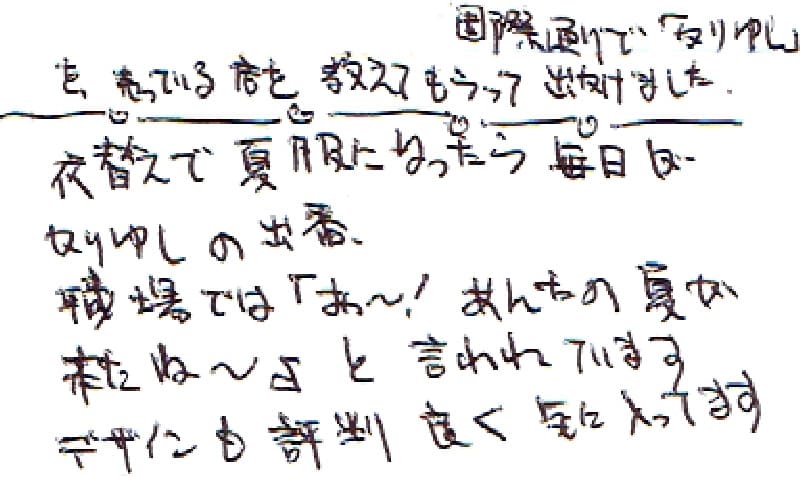 国際通りで「かりゆし」
を売っている店を教えてもらって出かけました.
衣替えで夏服になったら毎日が
かりゆしの出番、
職場では「あ〜!あんたの夏が
来たね〜」と言われています
デザインも評判良く気に入ってます